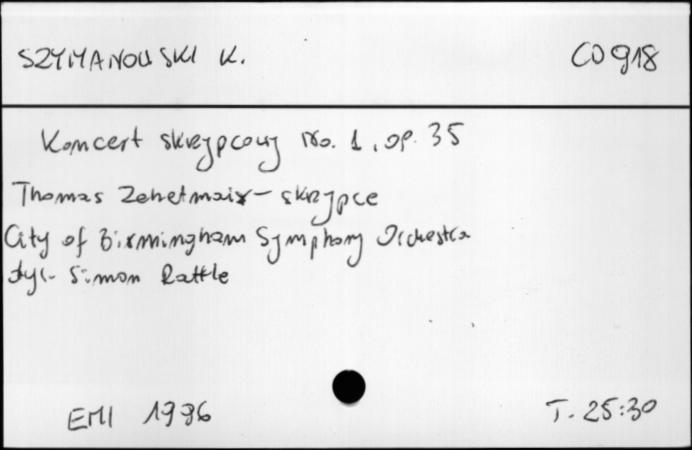 SZYMANOWSKI K. CD 918
Koncert skrzypcowy No. 1, op. 35
Thomas Zehetmair - skrzypce
City of Birmingham Symphony Orchestra
dyr. Simon Rattle
EMI 1996 T. 25:30